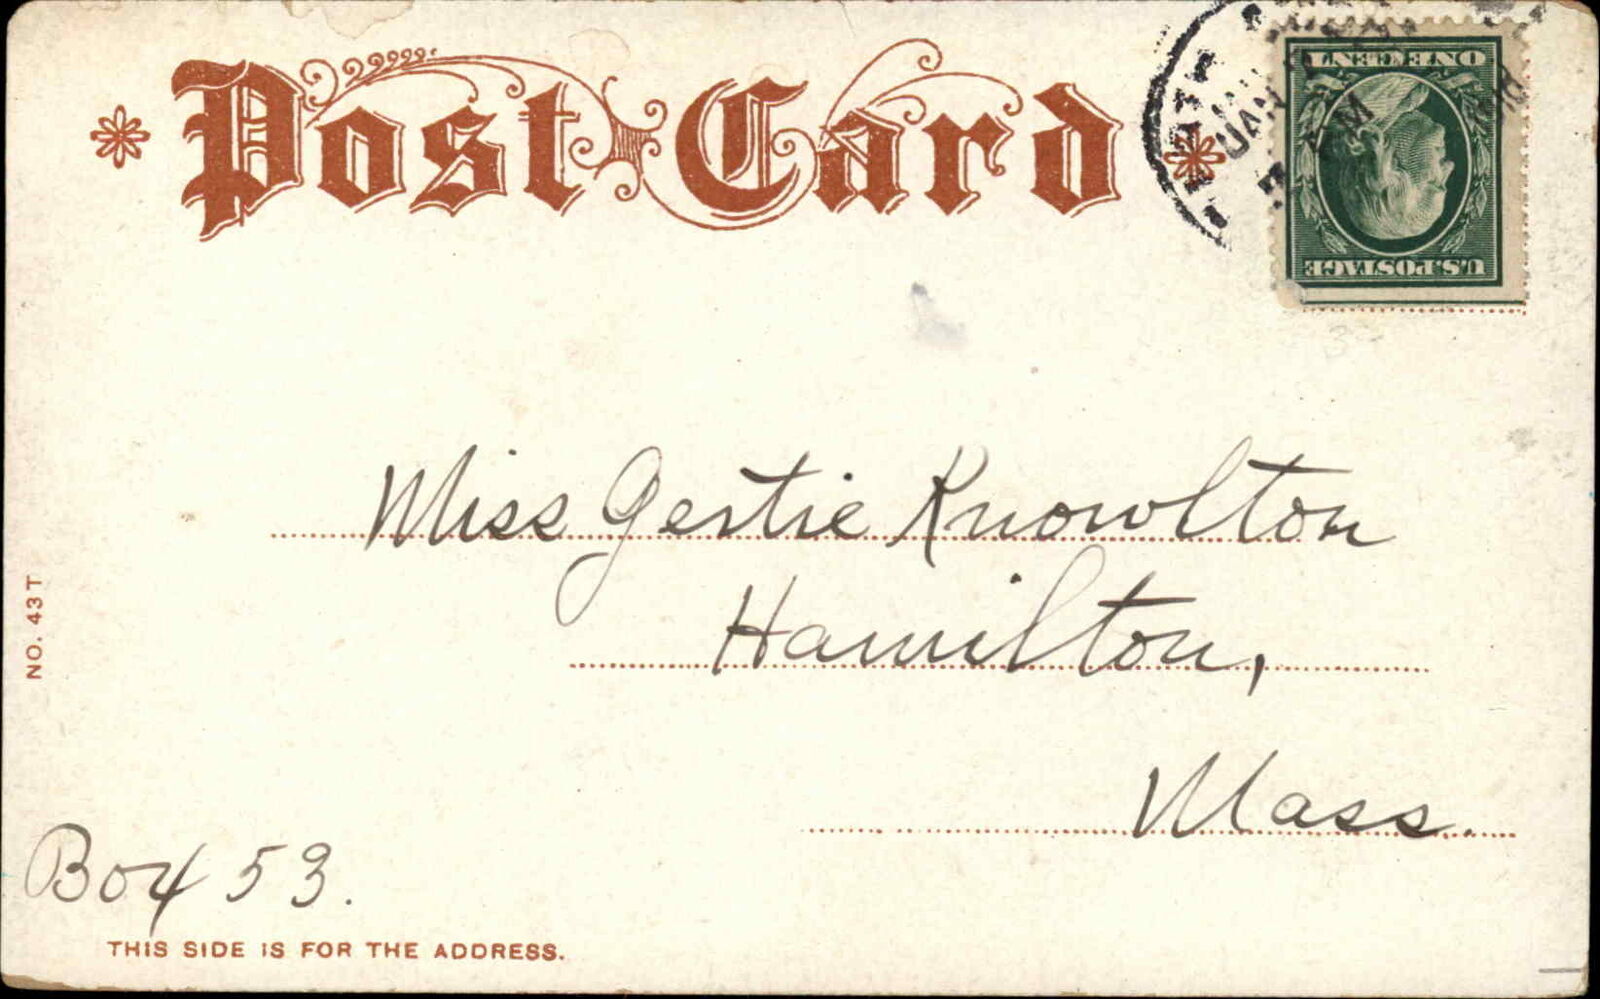 Post Card
JAN
AM
ONE CENT
U.S. POSTAGE
Miss Gertie Knowlton
Hamilton,
Mass.
Box 53.
NO. 43 T
THIS SIDE IS FOR THE ADDRESS.